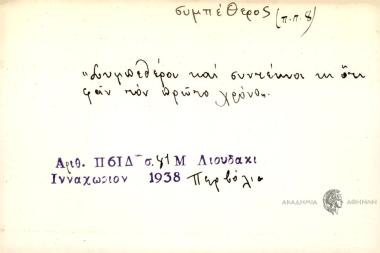 συμπέθερος (π.π.8)
"Συμπεθέροι καί συντέκνοι κι ὅτι
φᾶν τὸν πρῶτο χρόνο".
Αριθ. Π6ΙΔ σ.41 Μ Λιουδακι
Ινναχωριον 1938 Περβόλια
ΑΚΑΔΗΜΙΑ ΑΘΗΝΩΝ